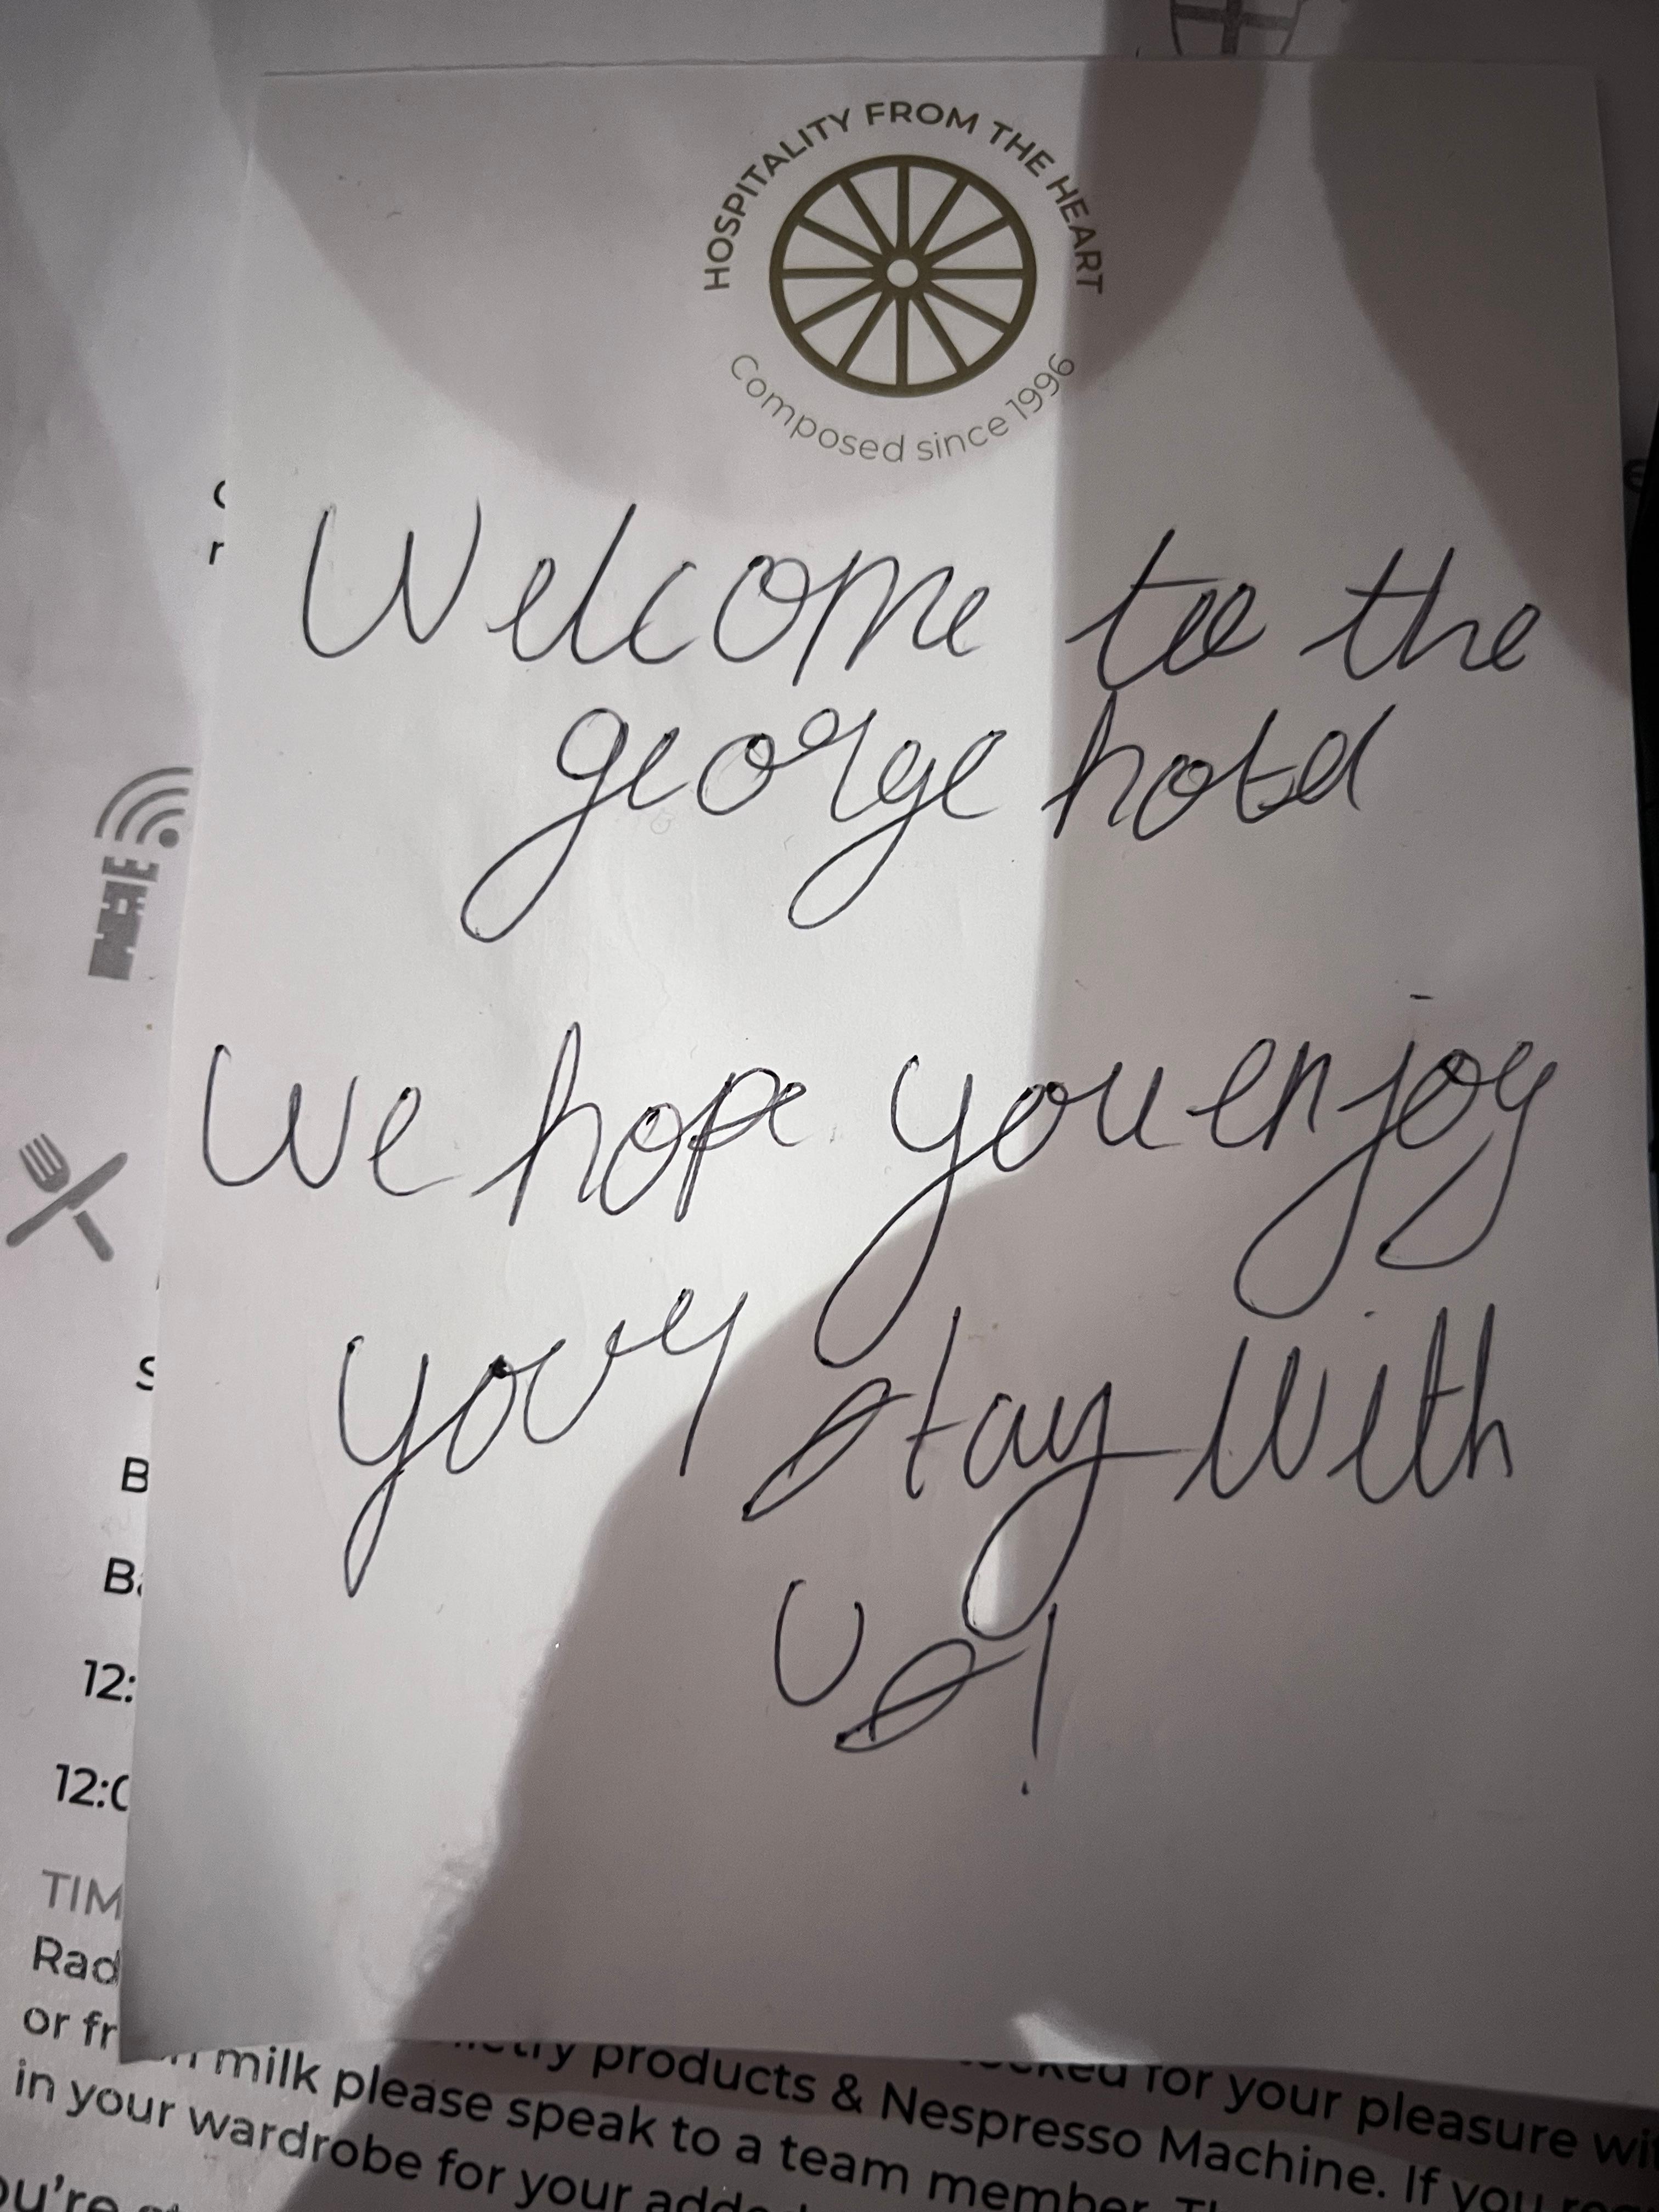 HOSPITALITY FROM THE HEART
Composed since 1996
Welcome to the
george hotel
We hope you enjoy
your stay with
us!
S
B
12:
12:0
TIM
Rad
or fr
products & Nespresso
for your pleasure
milk please speak to a team member.
Machine. If you
in your wardrobe for your